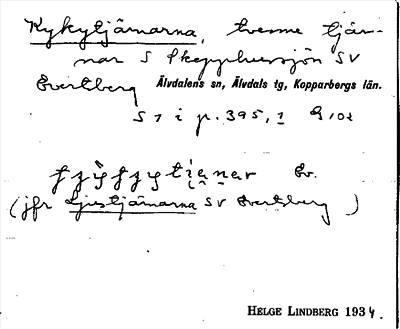 Kykytjärnarna, tvenne tjär-
nar S Skepphussjön SV
Evertberg Älvdalens sn, Älvdals tg, Kopparbergs län.
S 1 i p. 395, 1 G 102
Ev.
(jfr Ljustjärnarna SV Evertsberg)
HELGE LINDBERG 1934.